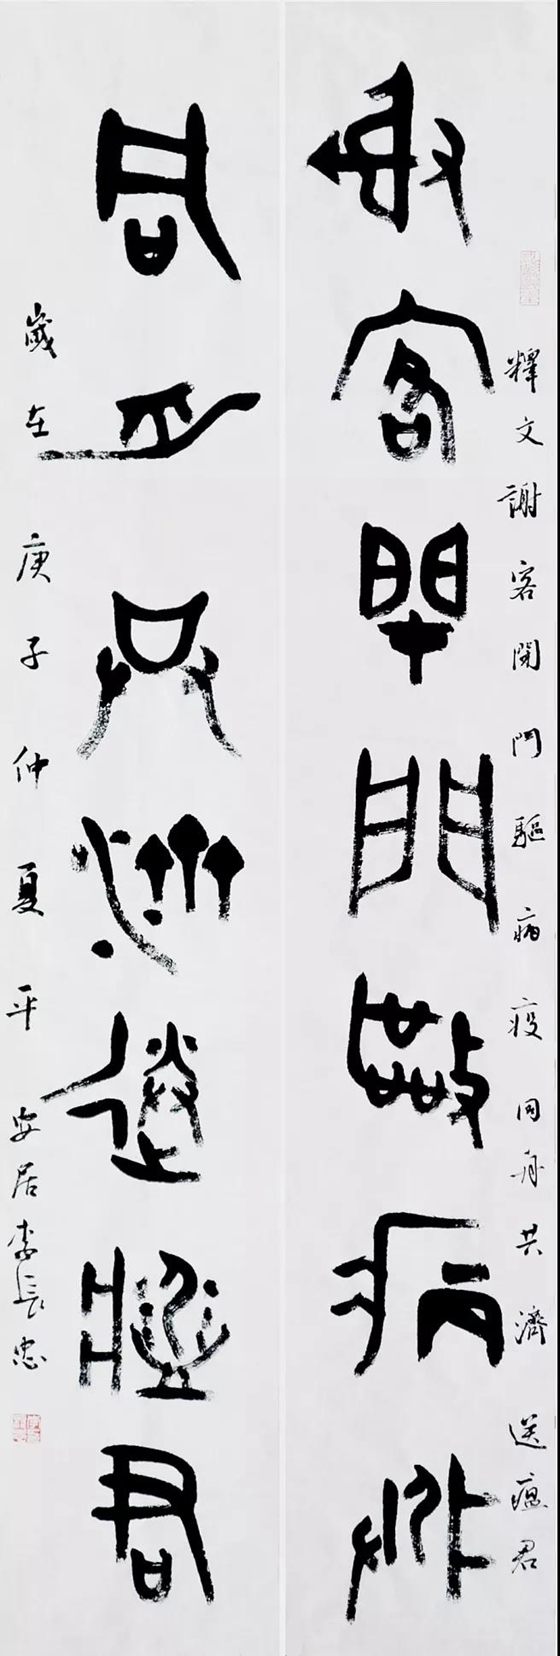 釋文謝客閉門驅病疫同舟共濟送瘟君
謝客閉門驅病疫
同舟共濟送瘟君
歲在庚子仲夏平安居李長忠